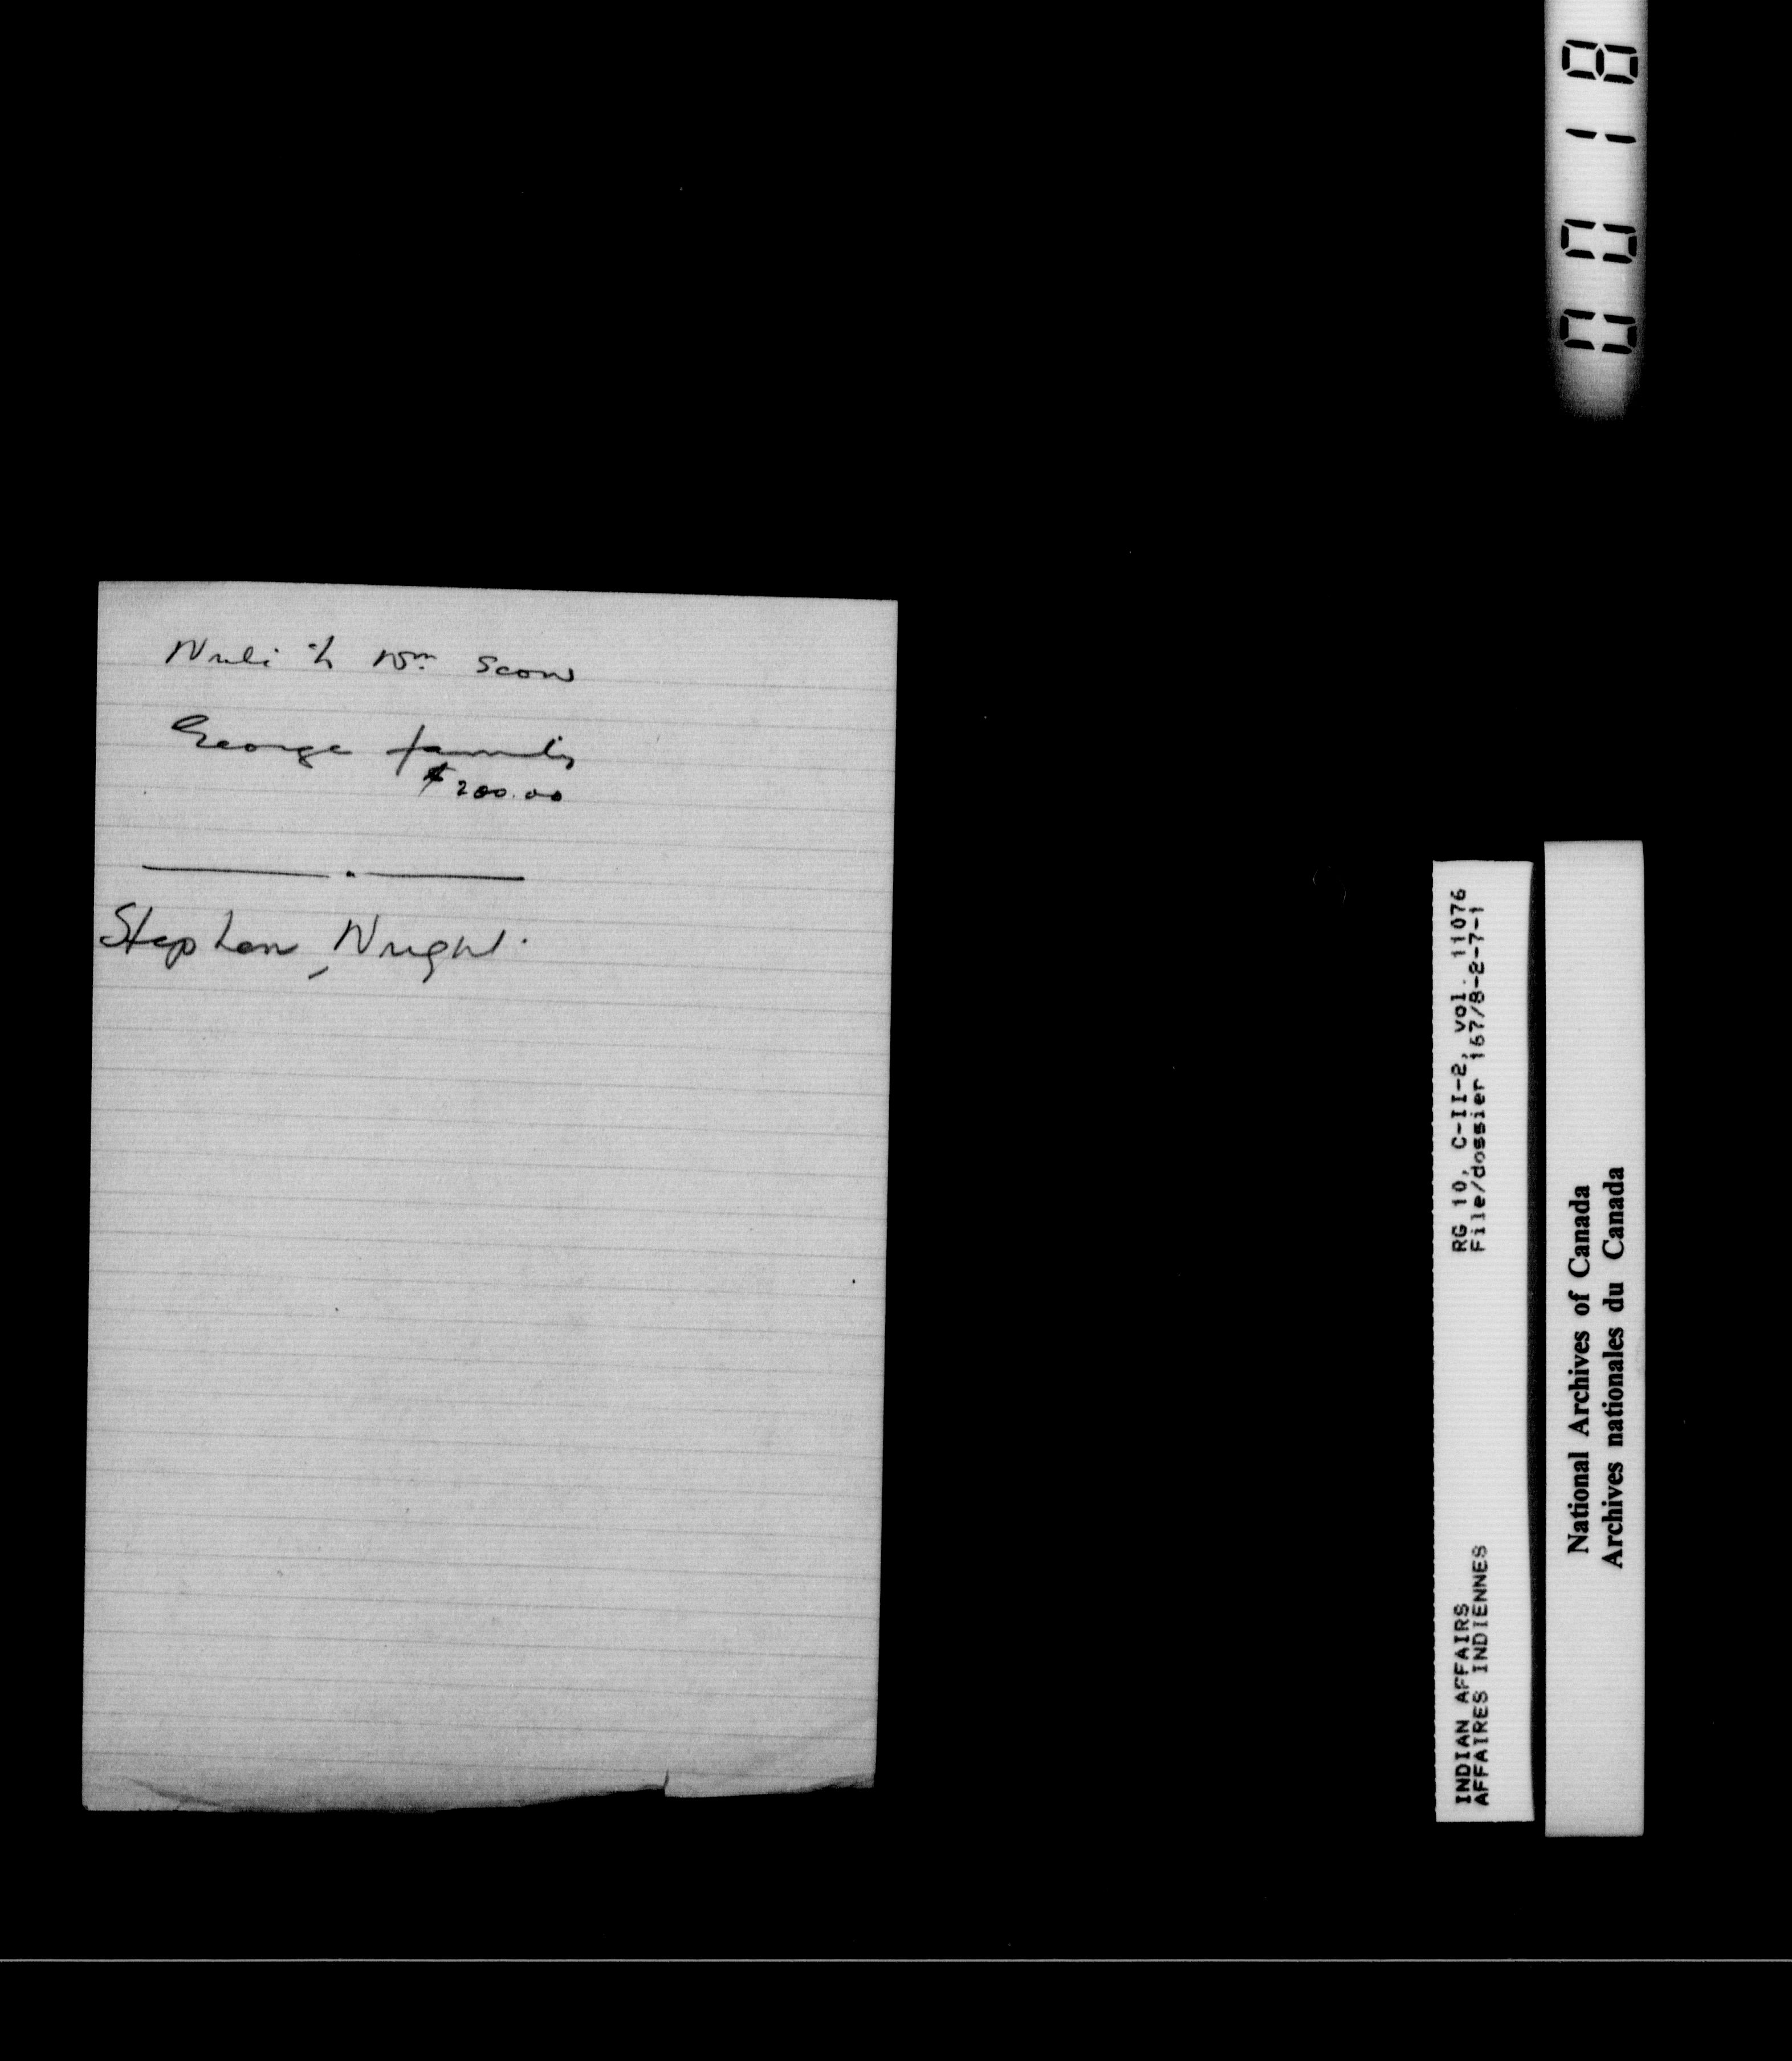 Write to Wm Scow
George family
$200.00
Stephen, Wright.
0018
RG 10, C-II-2, vol. 11076
File/dossier 167/8-2-7-1
INDIAN AFFAIRS
AFFAIRES INDIENNES
National Archives of Canada
Archives nationales du Canada